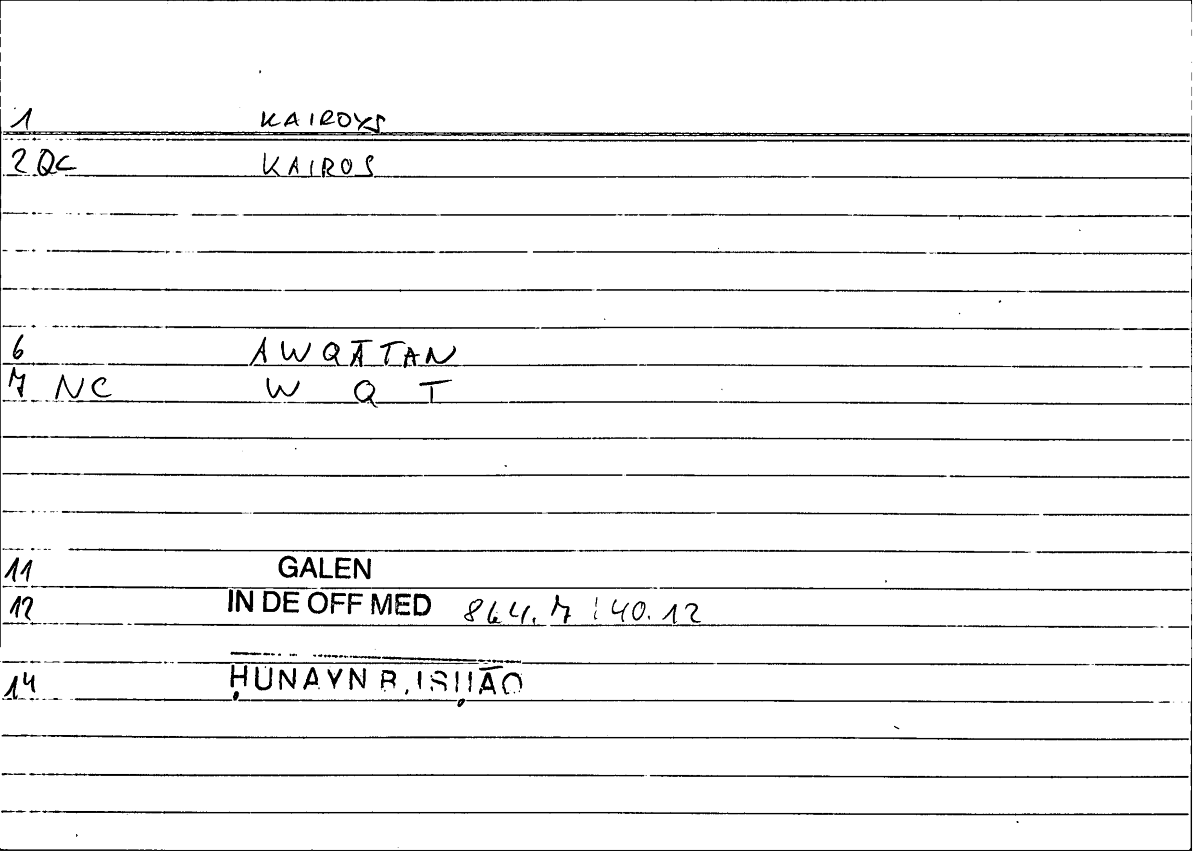 1 KAIROYS
2 QC KAIROS
6 AWQĀTAN
7 NC W Q T
11 GALEN
12 IN DE OFF MED 864.7 : 40.12
14 ḤUNAYN B. ISḤĀQ